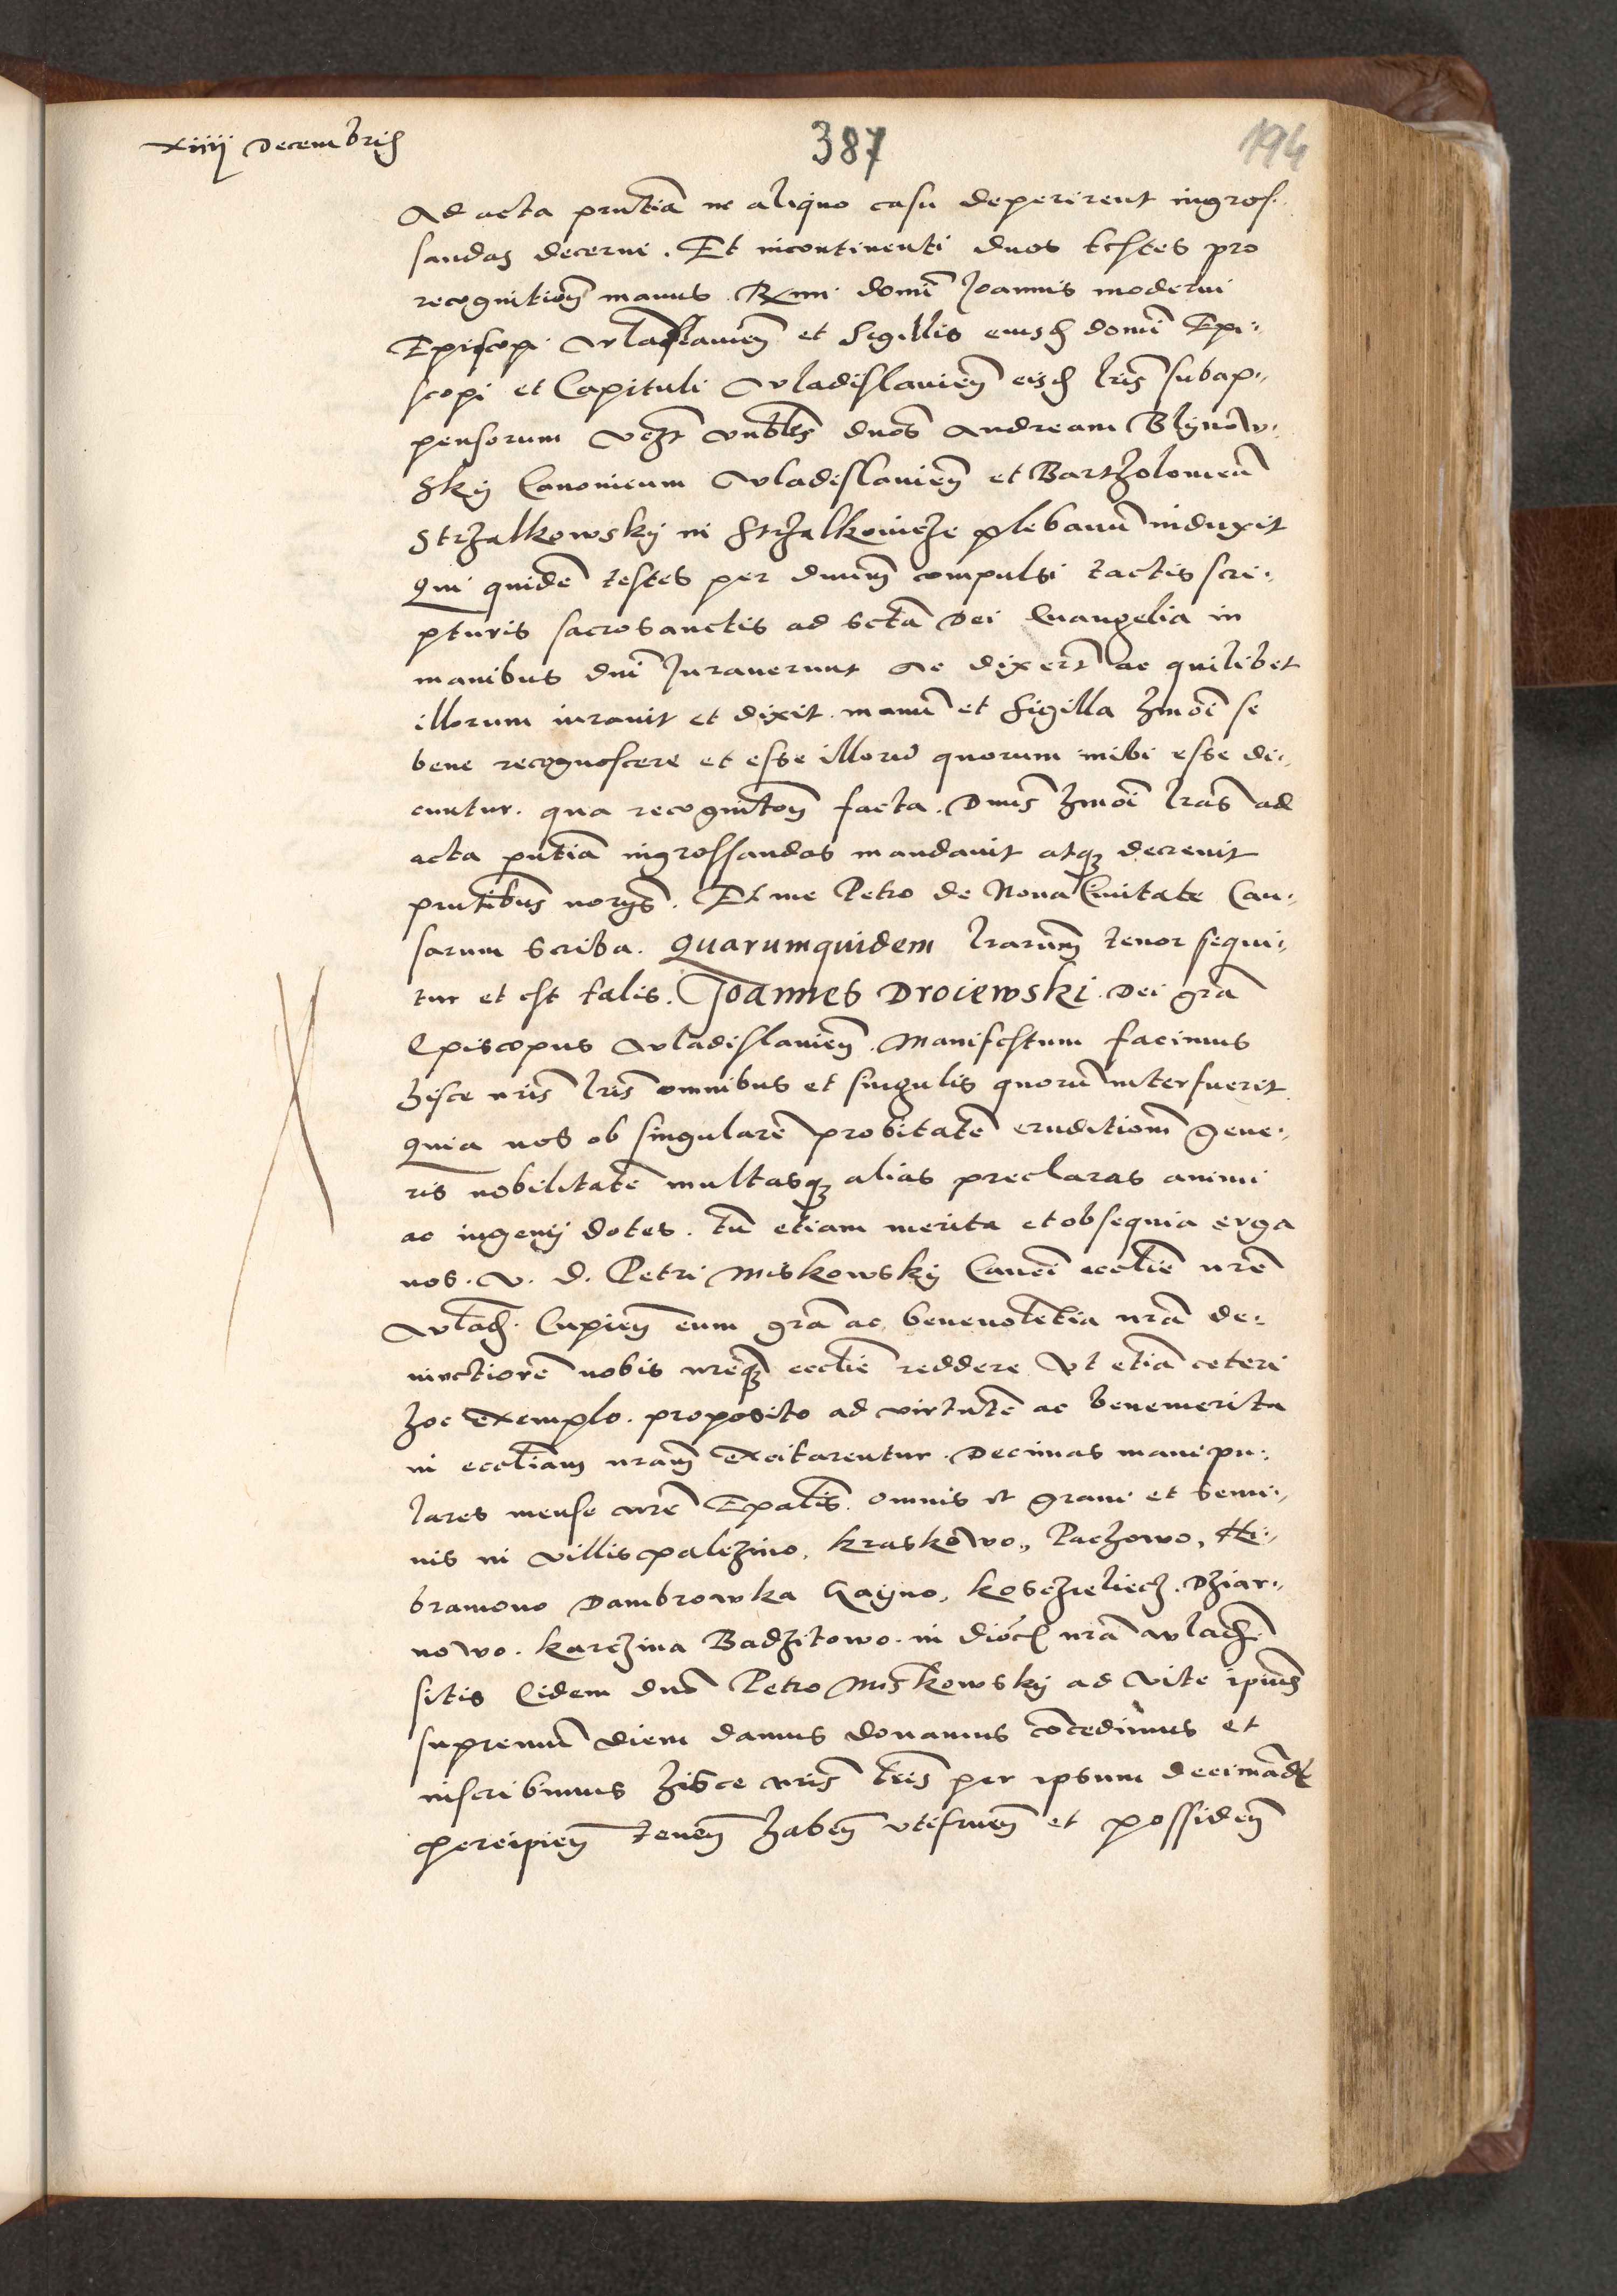 xiiij Decembris
387
194
Ad acta pntia ne aliquo casu deperirent ingros-
sandas decerni. Et incontinenti duos testes pro
recognitione manus Rmi domi Joannis moderni
Episcopi Wladislavien et Sigillis eiusd domi Epi-
scopi et Capituli Wladislavien eisd lris subap-
pensorum vczt vnbles dnos Andream Blynow-
sky Canonicum Wladislavien et Bartholomeu
Strzalkowsky in Strzalkowicze plebanu induxit
Qui quide testes per dnum compulsi tactis scri-
pturis sacrosanctis ad scta Dei Euangelia in
manibus dni Jurauerunt Ac dixert ac quilibet
illorum iurauit et dixit manu et Sigilla hmoi se
bene recognoscere et esse illoru quorum inibi esse di-
cuntur. qua recognitoe facta. Dnus hmoi lras ad
acta pntia ingrossandas mandauit atq decreuit
pntibus norys. Et me Petro de Noua Ciuitate Cau-
sarum Scriba. Quarumquidem lrarum tenor sequi-
tur et est talis. Joannes Droiewski Dei gra
Episcopus Wladislavien. Manifestum facimus
hisce nris lris omnibus et singulis quoru interfuerit
Quia nos ob singulare probitate eruditionem gene-
ris nobilitate multasq alias preclaras animi
ac ingenij dotes. tu etiam merita et obsequia erga
nos. V. D. Petri Miskowsky Canci ecclie nre
Wlad. Cupien eum gra ac beneuoletia nra de-
uinctiore nobis nreq ecclie reddere Vt etia ceteri
hoc exemplo proposito ad virtute ac benemerita
in eccliam nram excitarentur. Decimas manipu-
lares mense nre Epalis omnis et grani et semi-
nis in villis palczino, Kraskowo, Paczowo,
bramowo Dambrowka Gayno, Kosczieliecz. Dziar-
nowo. Karczina Badzitowo. in dioc nra Wlad
sitis Eidem dno Petro Miskowsky ad vite ipius
supremu diem damus donamus cocedimus et
inscribimus hisce nris lris per ipsum decimad
percipien tenen haben vtifruen et possiden